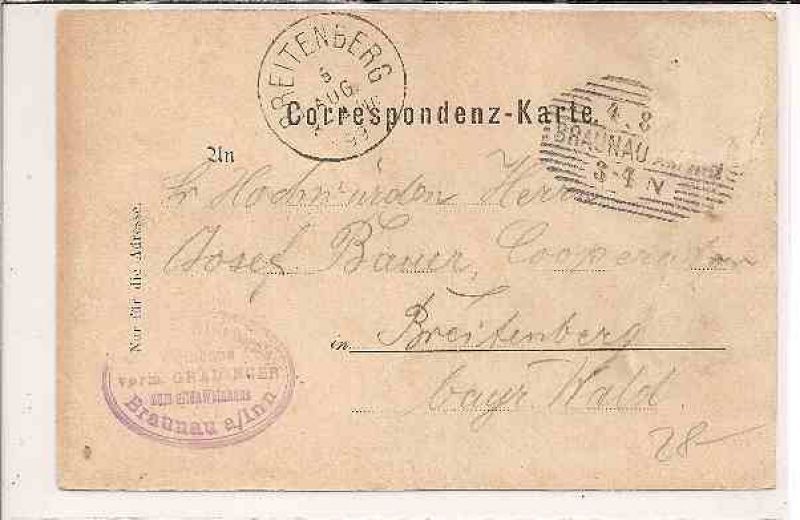 BREITENBERG
5
AUG.
Correspondenz-Karte.
4.8
BRAUNAU
3-4 N
An
Sr Hochwürden Herrn
Josef Bauer, Cooperator
in Breitenberg
bayr Wald
Nur für die Adresse.
vorm. GRADINGER
Braunau a/Inn
28-